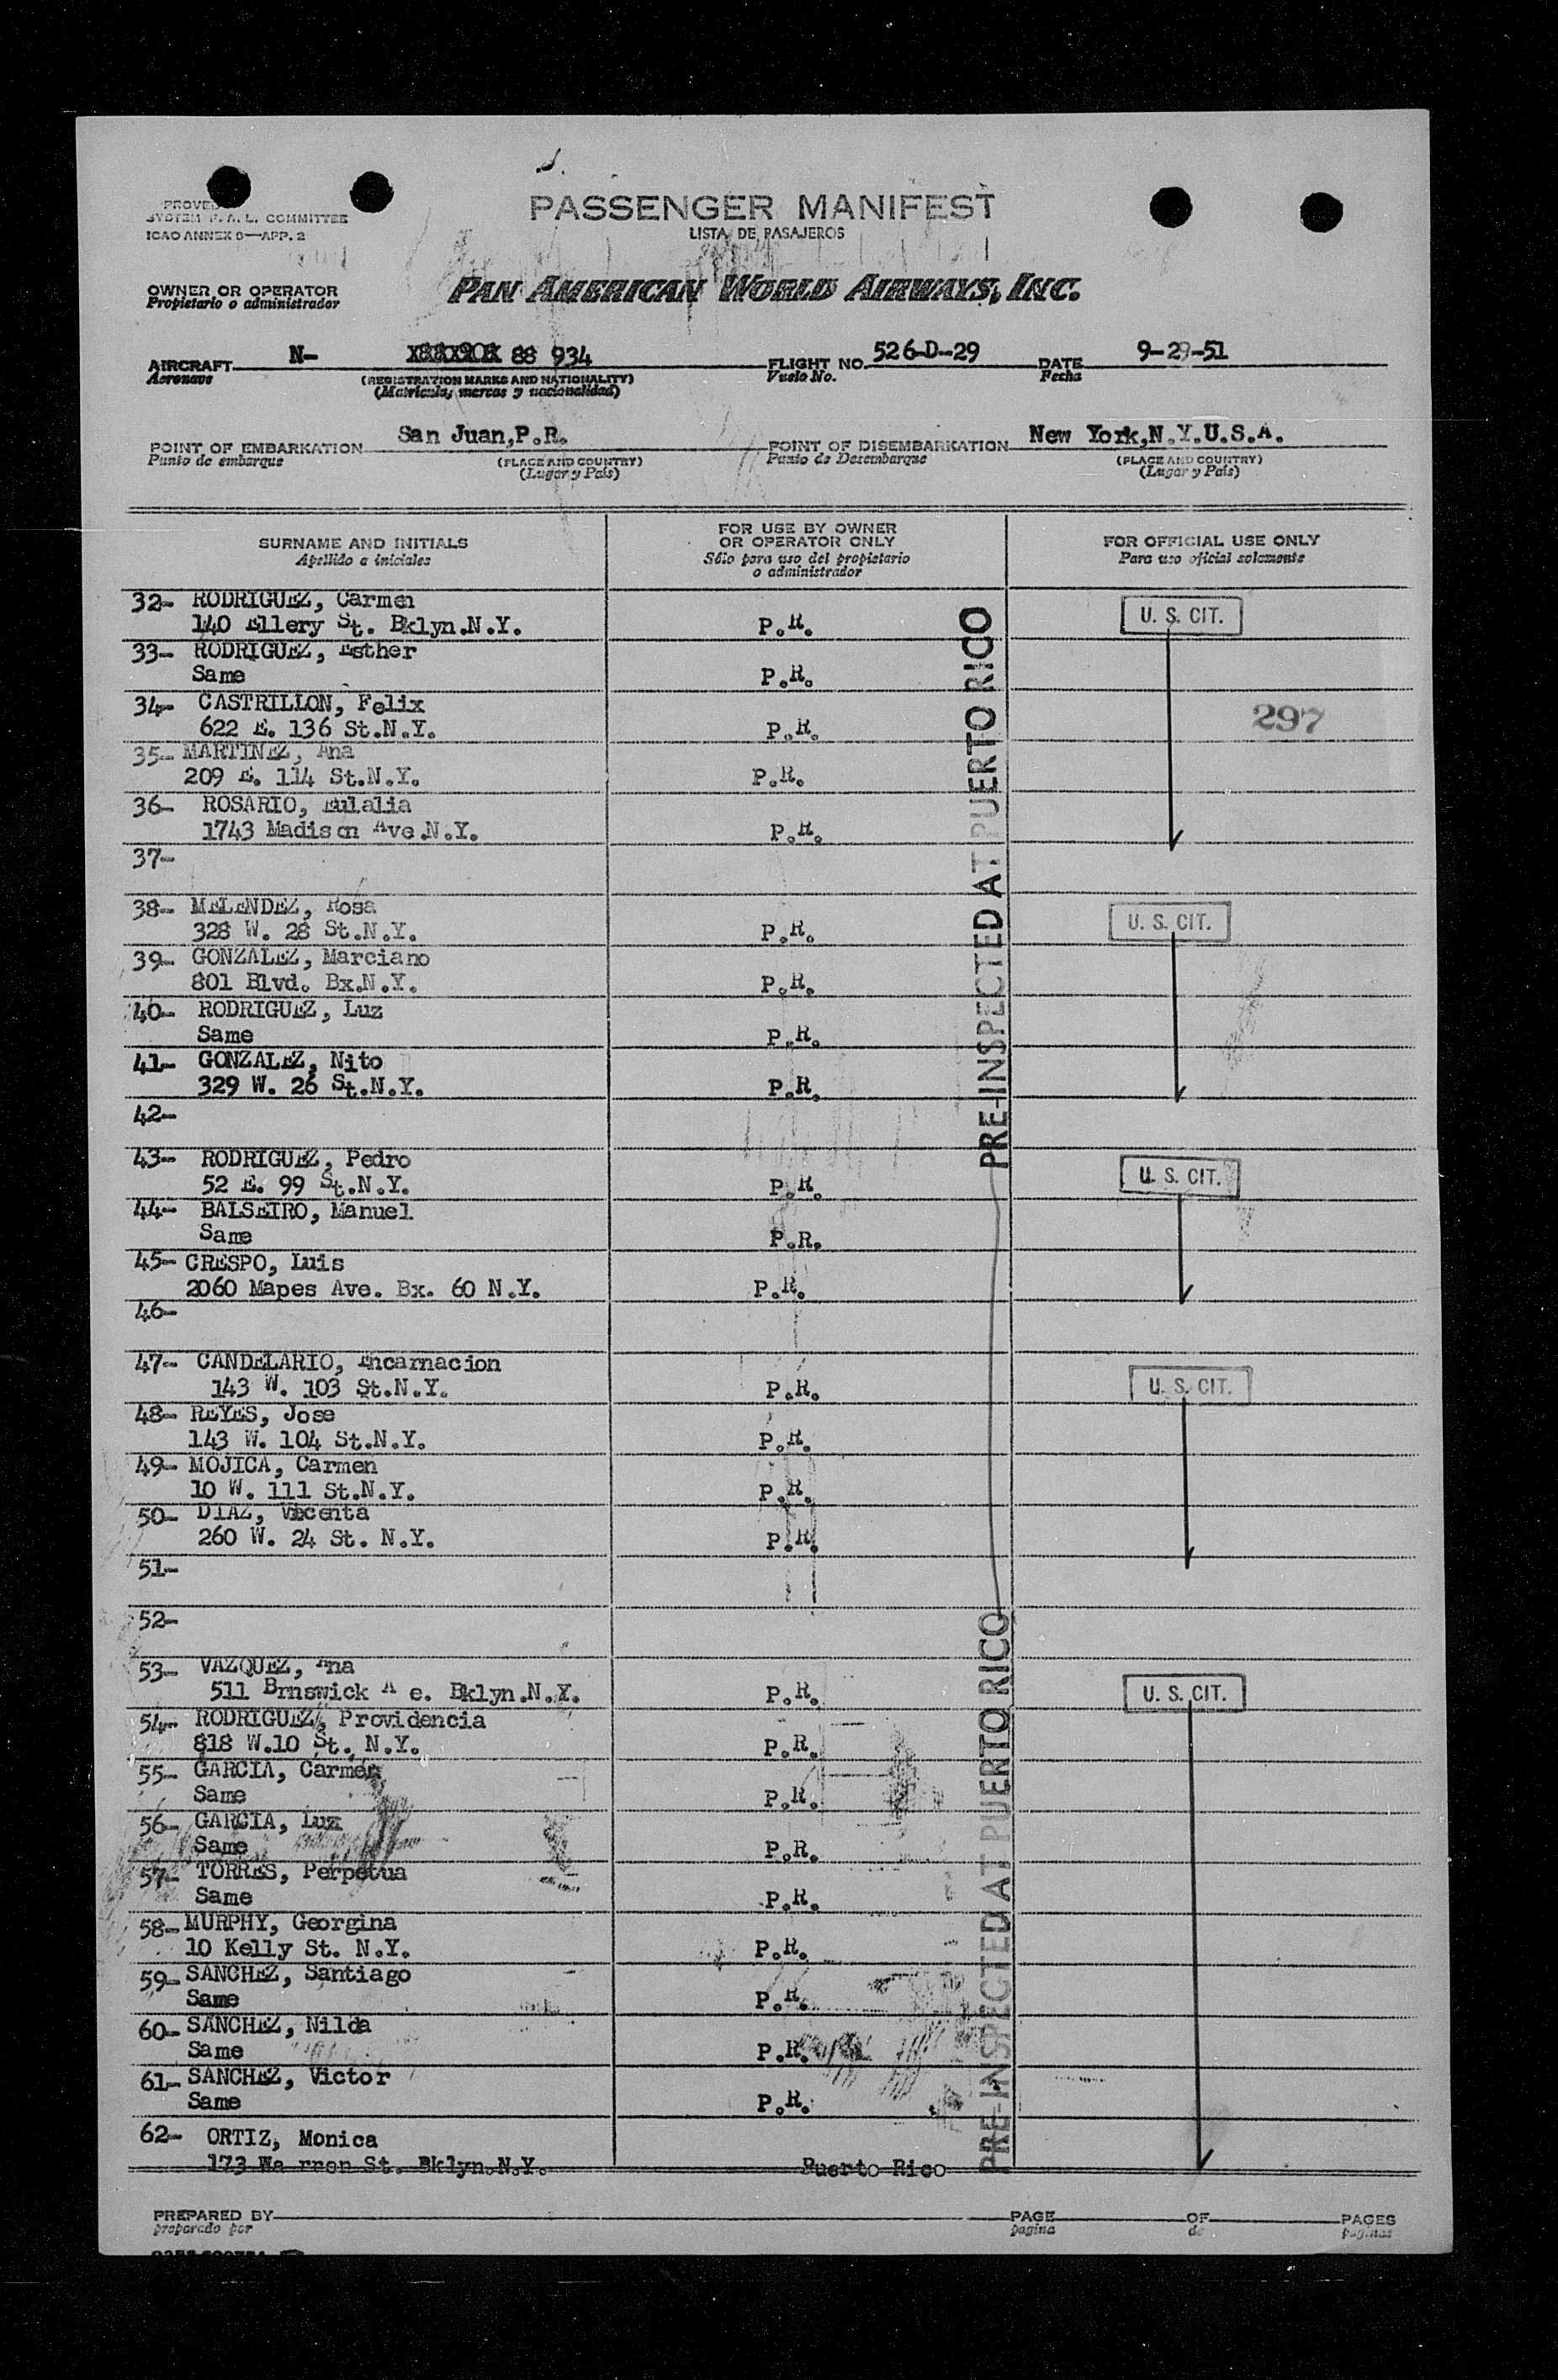 PASSENGER MANIFEST
LISTA DE PASAJEROS
SYSTEM F. A. L. COMMITTEE
ICAO ANNEX 9—APP. 2
OWNER OR OPERATOR
Propietario o administrador
PAN AMERICAN WORLD AIRWAYS, INC.
AIRCRAFT N- 88 934 FLIGHT NO. 526-D-29 DATE 9-29-51
Aeronave (REGISTRATION MARKS AND NATIONALITY) Vuelo No. Fecha
(Matricula, marcas y nacionalidad)
POINT OF EMBARKATION San Juan,P.R. POINT OF DISEMBARKATION New York,N.Y.U.S.A.
Punto de embarque (PLACE AND COUNTRY) Punto de Desembarque (PLACE AND COUNTRY)
(Lugar y País) (Lugar y País)
SURNAME AND INITIALS
Apellido a iniciales
FOR USE BY OWNER
OR OPERATOR ONLY
Sólo para uso del propietario
o administrador
FOR OFFICIAL USE ONLY
Para uso oficial solamente
32- RODRIGUEZ, Carmen
140 Ellery St. Bklyn.N.Y. P.R. U. S. CIT.
33- RODRIGUEZ, Esther
Same P.R.
34- CASTRILLON, Felix
622 E. 136 St.N.Y. P.R. 297
35- MARTINEZ, Ana
209 E. 114 St.N.Y. P.R.
36- ROSARIO, Eulalia
1743 Madison Ave.N.Y. P.R.
37-
38- MELENDEZ, Rosa
328 W. 28 St.N.Y. P.R. U. S. CIT.
39- GONZALEZ, Marciano
801 Blvd. Bx.N.Y. P.R.
40- RODRIGUEZ, Luz
Same P.R.
41- GONZALEZ, Nito
329 W. 26 St.N.Y. P.R.
42-
43- RODRIGUEZ, Pedro
52 E. 99 St.N.Y. P.R. U. S. CIT.
44- BALSEIRO, Manuel
Same P.R.
45- CRESPO, Luis
2060 Mapes Ave. Bx. 60 N.Y. P.R.
46-
47- CANDELARIO, Encarnacion
143 W. 103 St.N.Y. P.R. U. S. CIT.
48- REYES, Jose
143 W. 104 St.N.Y. P.R.
49- MOJICA, Carmen
10 W. 111 St.N.Y. P.R.
50- DIAZ,
260 W. 24 St. N.Y. P.R.
51-
52-
53- VAZQUEZ, Ana
511 Brnswick A e. Bklyn.N.Y. P.R. U. S. CIT.
54- RODRIGUEZ, Providencia
818 W.10 St. N.Y. P.R.
55- GARCIA, Carmen
Same P.R.
56- GARCIA, Luz
Same P.R.
57- TORRES, Perpetua
Same P.R.
58- MURPHY, Georgina
10 Kelly St. N.Y. P.R.
59- SANCHEZ, Santiago
Same P.R.
60- SANCHEZ, Nilda
Same P.R.
61- SANCHEZ, Victor
Same P.R.
62- ORTIZ, Monica
173 Wa rren St. Bklyn.N.Y. Puerto Rico
PRE-INSPECTED AT PUERTO RICO
PRE-INSPECTED AT PUERTO RICO
PREPARED BY PAGE OF PAGES
preparado por pagina de paginas